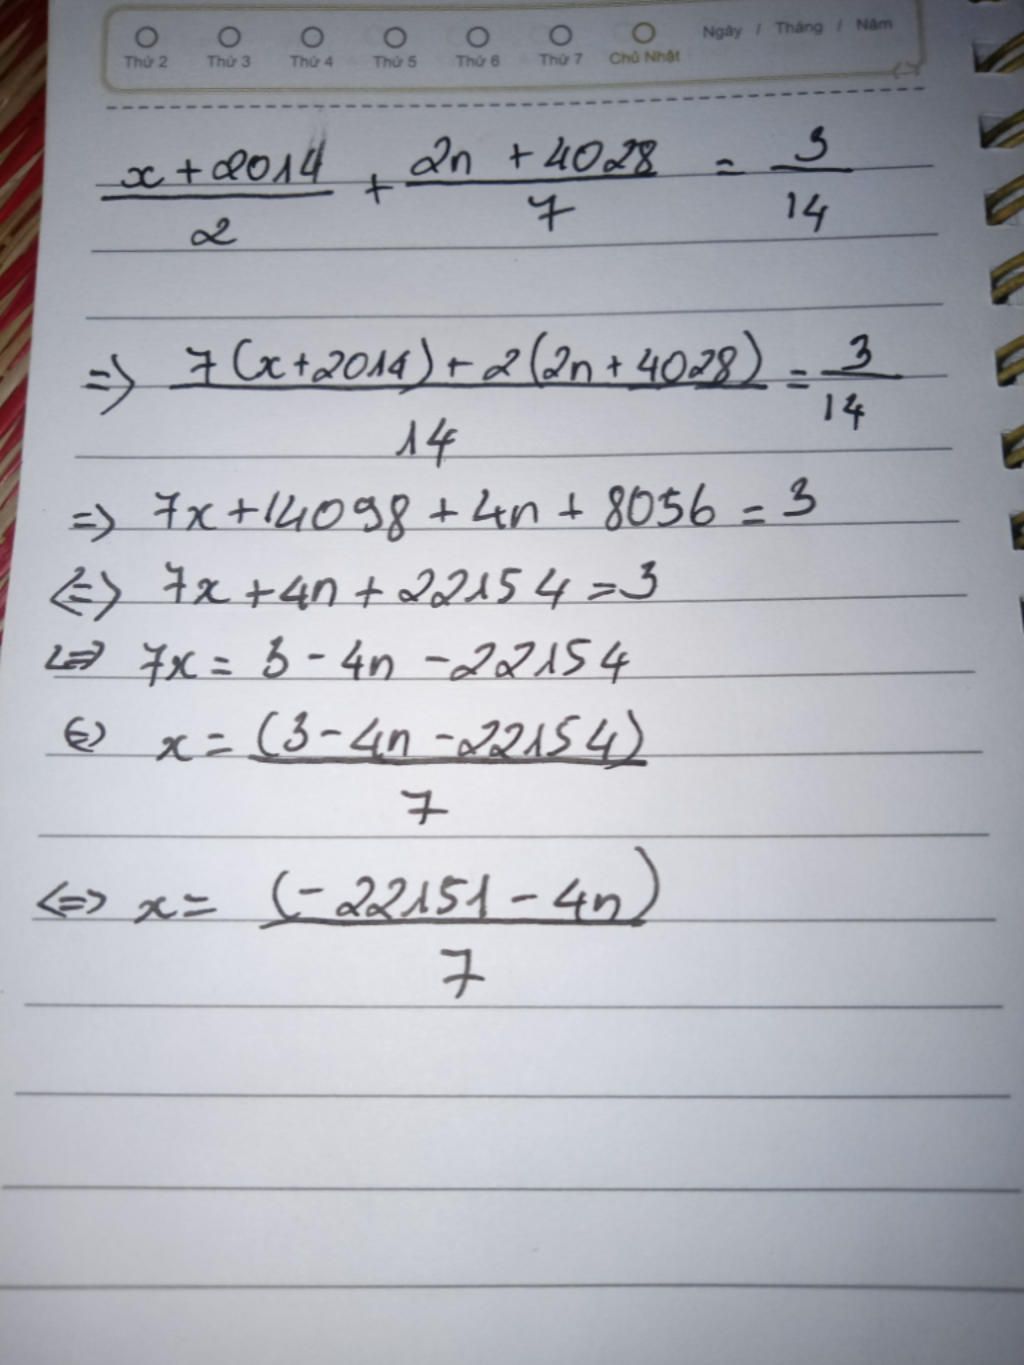 Thứ 2 Thứ 3 Thứ 4 Thứ 5 Thứ 6 Thứ 7 Chủ Nhật Ngày / Tháng / Năm
x+2014/2 + 2n+4028/7 = 3/14
=> 7(x+2014)+2(2n+4028)/14 = 3/14
=> 7x+14098+4n+8056=3
<=> 7x+4n+22154=3
<=> 7x=3-4n-22154
<=> x=(3-4n-22154)/7
<=> x=(-22151-4n)/7